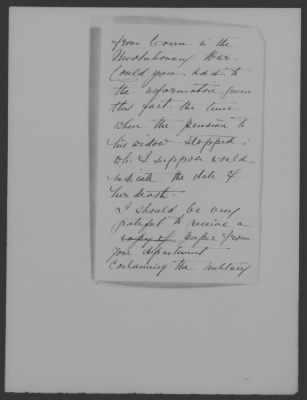 from Conn. in the
Revolutionary War.
Could you add to
the information given
this fact, the time
when the pension to
his widow stopped;
wh. I suppose would
indicate the date of
her death.
I should be very
grateful to receive a
copy of paper from
your department
containing the military